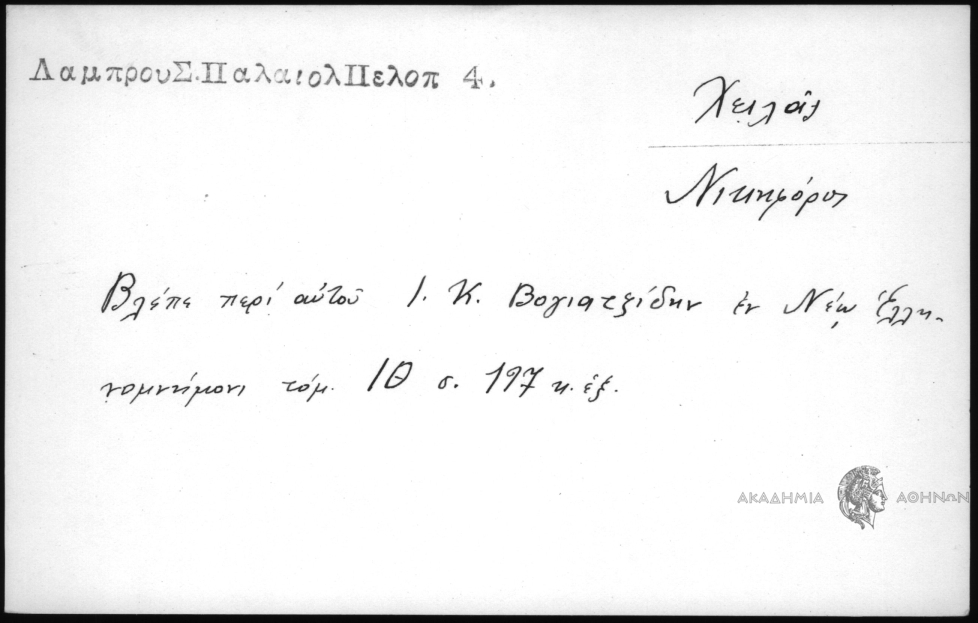 ΛαμπρουΣ.ΠαλαιολΠελοπ 4.
Χειλᾶς
Νικηφόρος
Βλέπε περί αὐτοῦ Ι. Κ. Βογιατζίδην ἐν Νέῳ Ἑλλη-
νομνήμονι τόμ. ΙΘ σ. 197 κ. ἑξ.
ΑΚΑΔΗΜΙΑ ΑΘΗΝΩΝ